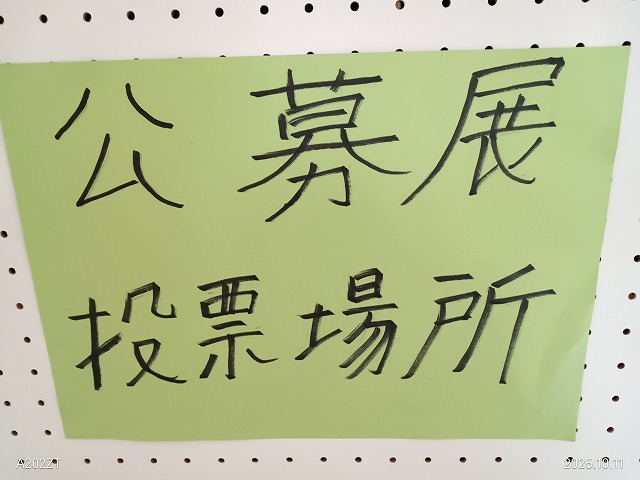 公募展
投票場所
A202ZT
2025.10.11